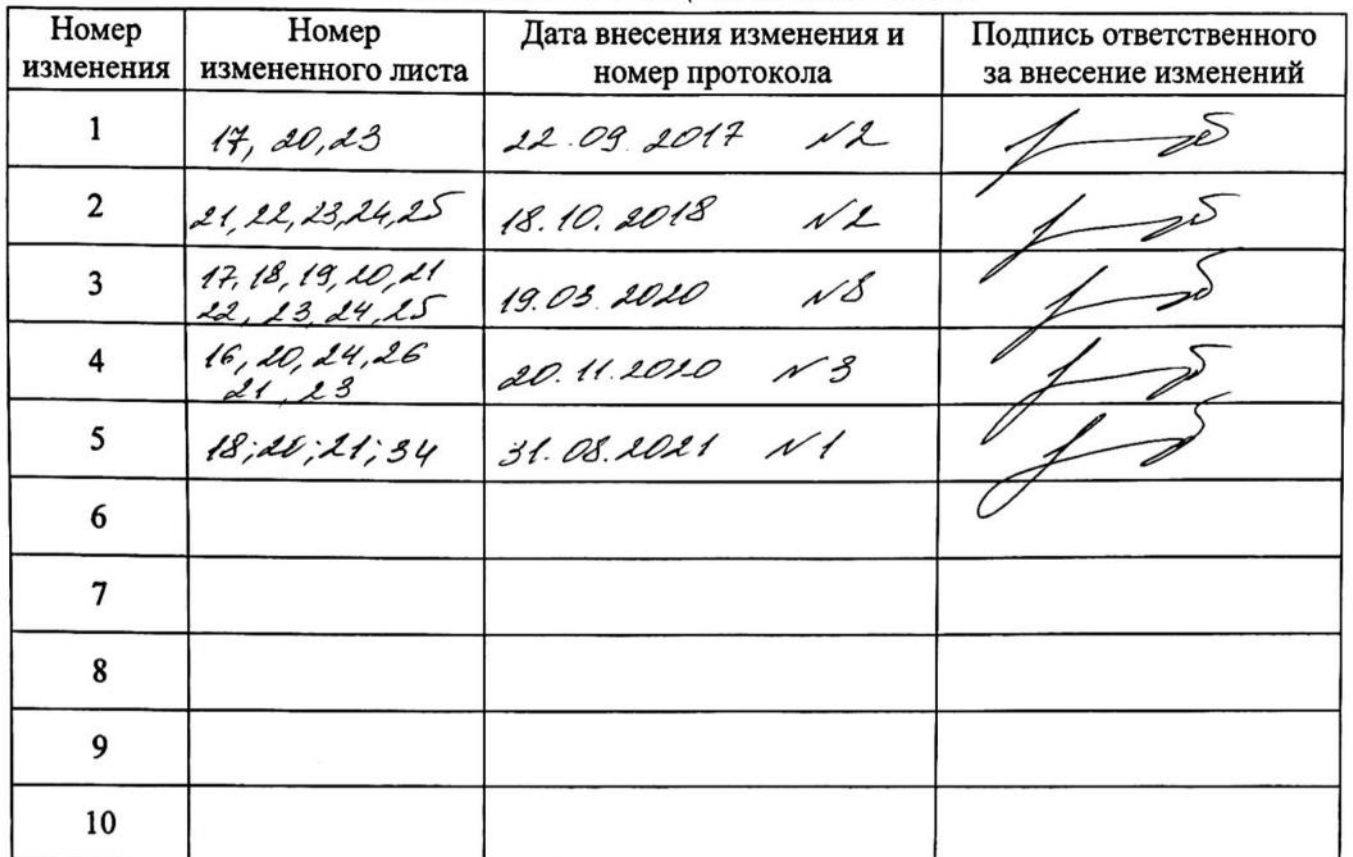 Номер изменения Номер измененного листа Дата внесения изменения и номер протокола Подпись ответственного за внесение изменений
1 17, 20, 23 22.09.2017 N2
2 21, 22, 23, 24, 25 18.10.2018 N2
3 17, 18, 19, 20, 21
22, 23, 24, 25 19.03.2020 N8
4 16, 20, 24, 26
21, 23 20.11.2020 N3
5 18; 20; 21; 34 31.08.2021 N1
6
7
8
9
10